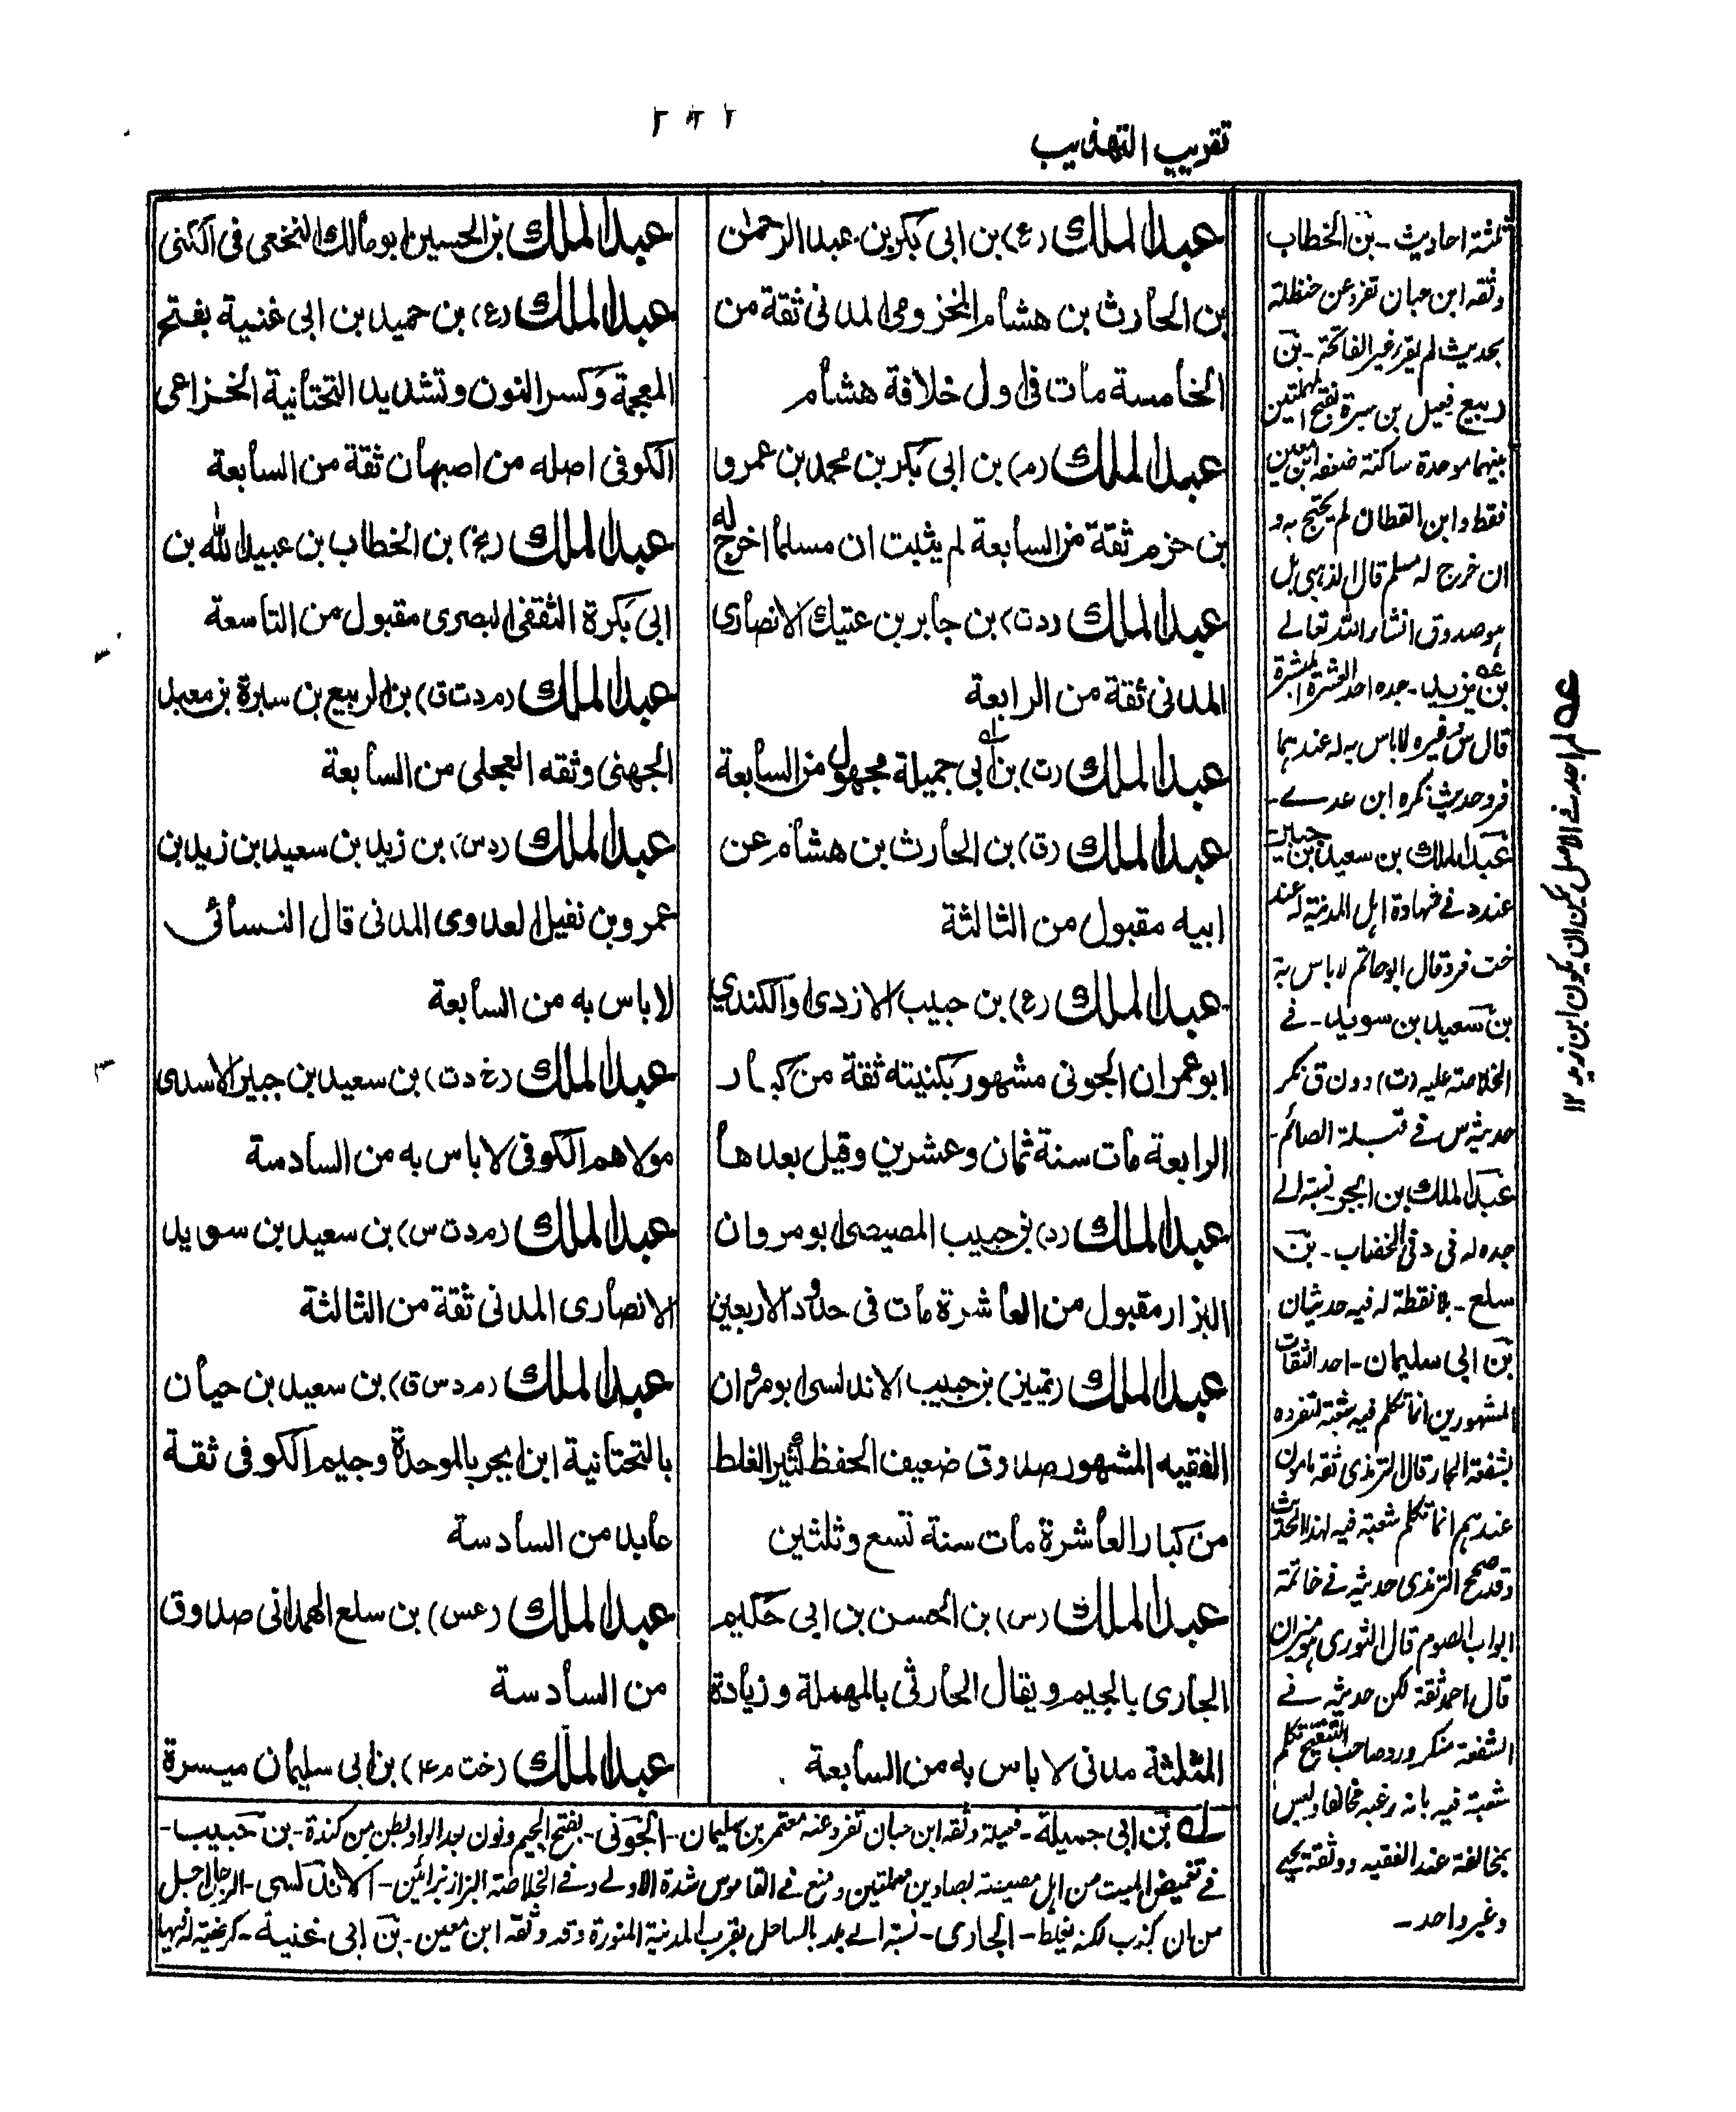 تقريب التهذيب
عبد الملك (ع) بن ابى بكر بن عبد الرحمن
بن الحارث بن هشام المخزومى المدنى ثقة من
الخامسة مات فى اول خلافة هشام
عبد الملك (م) بن ابى بكر بن محمد بن عمرو
بن حزم ثقة من السابعة لم يثبت ان مسلما اخرج له
عبد الملك (دت) بن جابر بن عتيك الانصارى
المدنى ثقة من الرابعة
عبد الملك (ت) بن ابى جميلة مجهول من السابعة
عبد الملك (ق) بن الحارث بن هشام عن
ابيه مقبول من الثالثة
عبد الملك (ع) بن حبيب الازدى او الكندي
ابو عمران الجونى مشهور بكنيته ثقة من كبار
الرابعة مات سنة ثمان وعشرين وقيل بعدها
عبد الملك (د) بن حبيب المصيصى ابو مروان
البزار مقبول من العاشرة مات فى حدود الاربعين
عبد الملك (تمييز) بن حبيب الاندلسى ابو مروان
الفقيه المشهور صدوق ضعيف الحفظ كثير الغلط
من كبار العاشرة مات سنة تسع وثلثين
عبد الملك (س) بن الحسن بن ابى حكيم
الجارى بالجيم ويقال الحارثى بالمهملة وزيادة
المثلثة مدنى لا باس به من السابعة
عبد الملك بن الحسين ابو مالك النخعى فى الكنى
عبد الملك (ع) بن حميد بن ابى غنية بفتح
المعجمة وكسر النون وتشديد التحتانية الخزاعى
الكوفى اصله من اصبهان ثقة من السابعة
عبد الملك (بخ) بن الخطاب بن عبيد الله بن
ابى بكرة الثقفى البصرى مقبول من التاسعة
عبد الملك (م د ت ق) بن الربيع بن سبرة بن معبد
الجهنى وثقه العجلى من السابعة
عبد الملك (دس) بن زيد بن سعيد بن زيد بن
عمرو بن نفيل العدوى المدنى قال النسائى
لا باس به من السابعة
عبد الملك (خ د ت) بن سعيد بن جبير الاسدى
مولاهم الكوفى لا باس به من السادسة
عبد الملك (م د ت س) بن سعيد بن سويد
الانصارى المدنى ثقة من الثالثة
عبد الملك (م د س ق) بن سعيد بن حيان
بالتحتانية ابن ابجر بالموحدة وجيم الكوفى ثقة
عابد من السادسة
عبد الملك (عس) بن سلع الهمدانى صدوق
من السادسة
عبد الملك (خت م ۴) بن ابى سليمان ميسرة
ثلثة احاديث - بن الخطاب
وثقه ابن حبان تفرد عن حنظلة
بحديث لم يقرء غير الفاتحة - بن
ربيع فعيل بن سبرة بفتح المهملتين
بينهما موحدة ساكنة ضعفه ابن معين
فقط وابن القطان لم يحتج به و
ان خرج له مسلم قال الذهبى بل
هو صدوق انشاء الله تعالے
بن يزيد - جده احد العشرة المبشرة
قال س وغيره لا باس به له عندهما
فرد حديث نكره ابن عدے -
عبد الملك بن سعيد بن جبير
عند د فے شهادة اهل المدينة له عند
خت فرد قال ابو حاتم لا باس به
بن سعيد بن سويد - فے
الخلاصة عليه (ت) دون ق نكر
حديثه س فے قبلة الصائم -
عبد الملك بن ابجر نسبة الے
جده له فى د فى الخضاب - بن
سلع - بلا نقطة له فيه حديثان
بن ابى سليمان - احد الثقات
المشهورين انما تكلم فيه شعبة لتفرده
بشفعة الجار قال الترمذى ثقة مامون
عندهم انما تكلم شعبة فيه لهذا الحديث
وقد صحح الترمذى حديثه فے خاتمة
ابواب الصوم قال الثورى هو ميزان
قال احمد ثقة لكن حديثه فے
الشفعة منكر ورد صاحب التنقيح تكلم
شعبة فيه بانه
بمخالفة عند الفقيه ووثقة يحيے
وغير واحد -
عه لم اجد فے الاصل يمكن ان يكون ابن زيد ١٢
له بن ابى جميلة - فعيلة وثقه ابن حبان تفرد عنه معتمر بن سليمان - الجونى - بفتح الجيم ونون بعد الواو لبطن من كندة - بن حبيب -
فے تغميض الميت من اهل مصيصة بصادين مهملتين ومنع فے القاموس شدة الاولے وفے الخلاصة البزاز بزائين - الاندلسى - الرجل اجل
من ان كذب لكنه يغلط - الجارى - نسبة الے بلد بالساحل بقرب المدينة المنورة وقد وثقه ابن معين - بن ابى غنية -